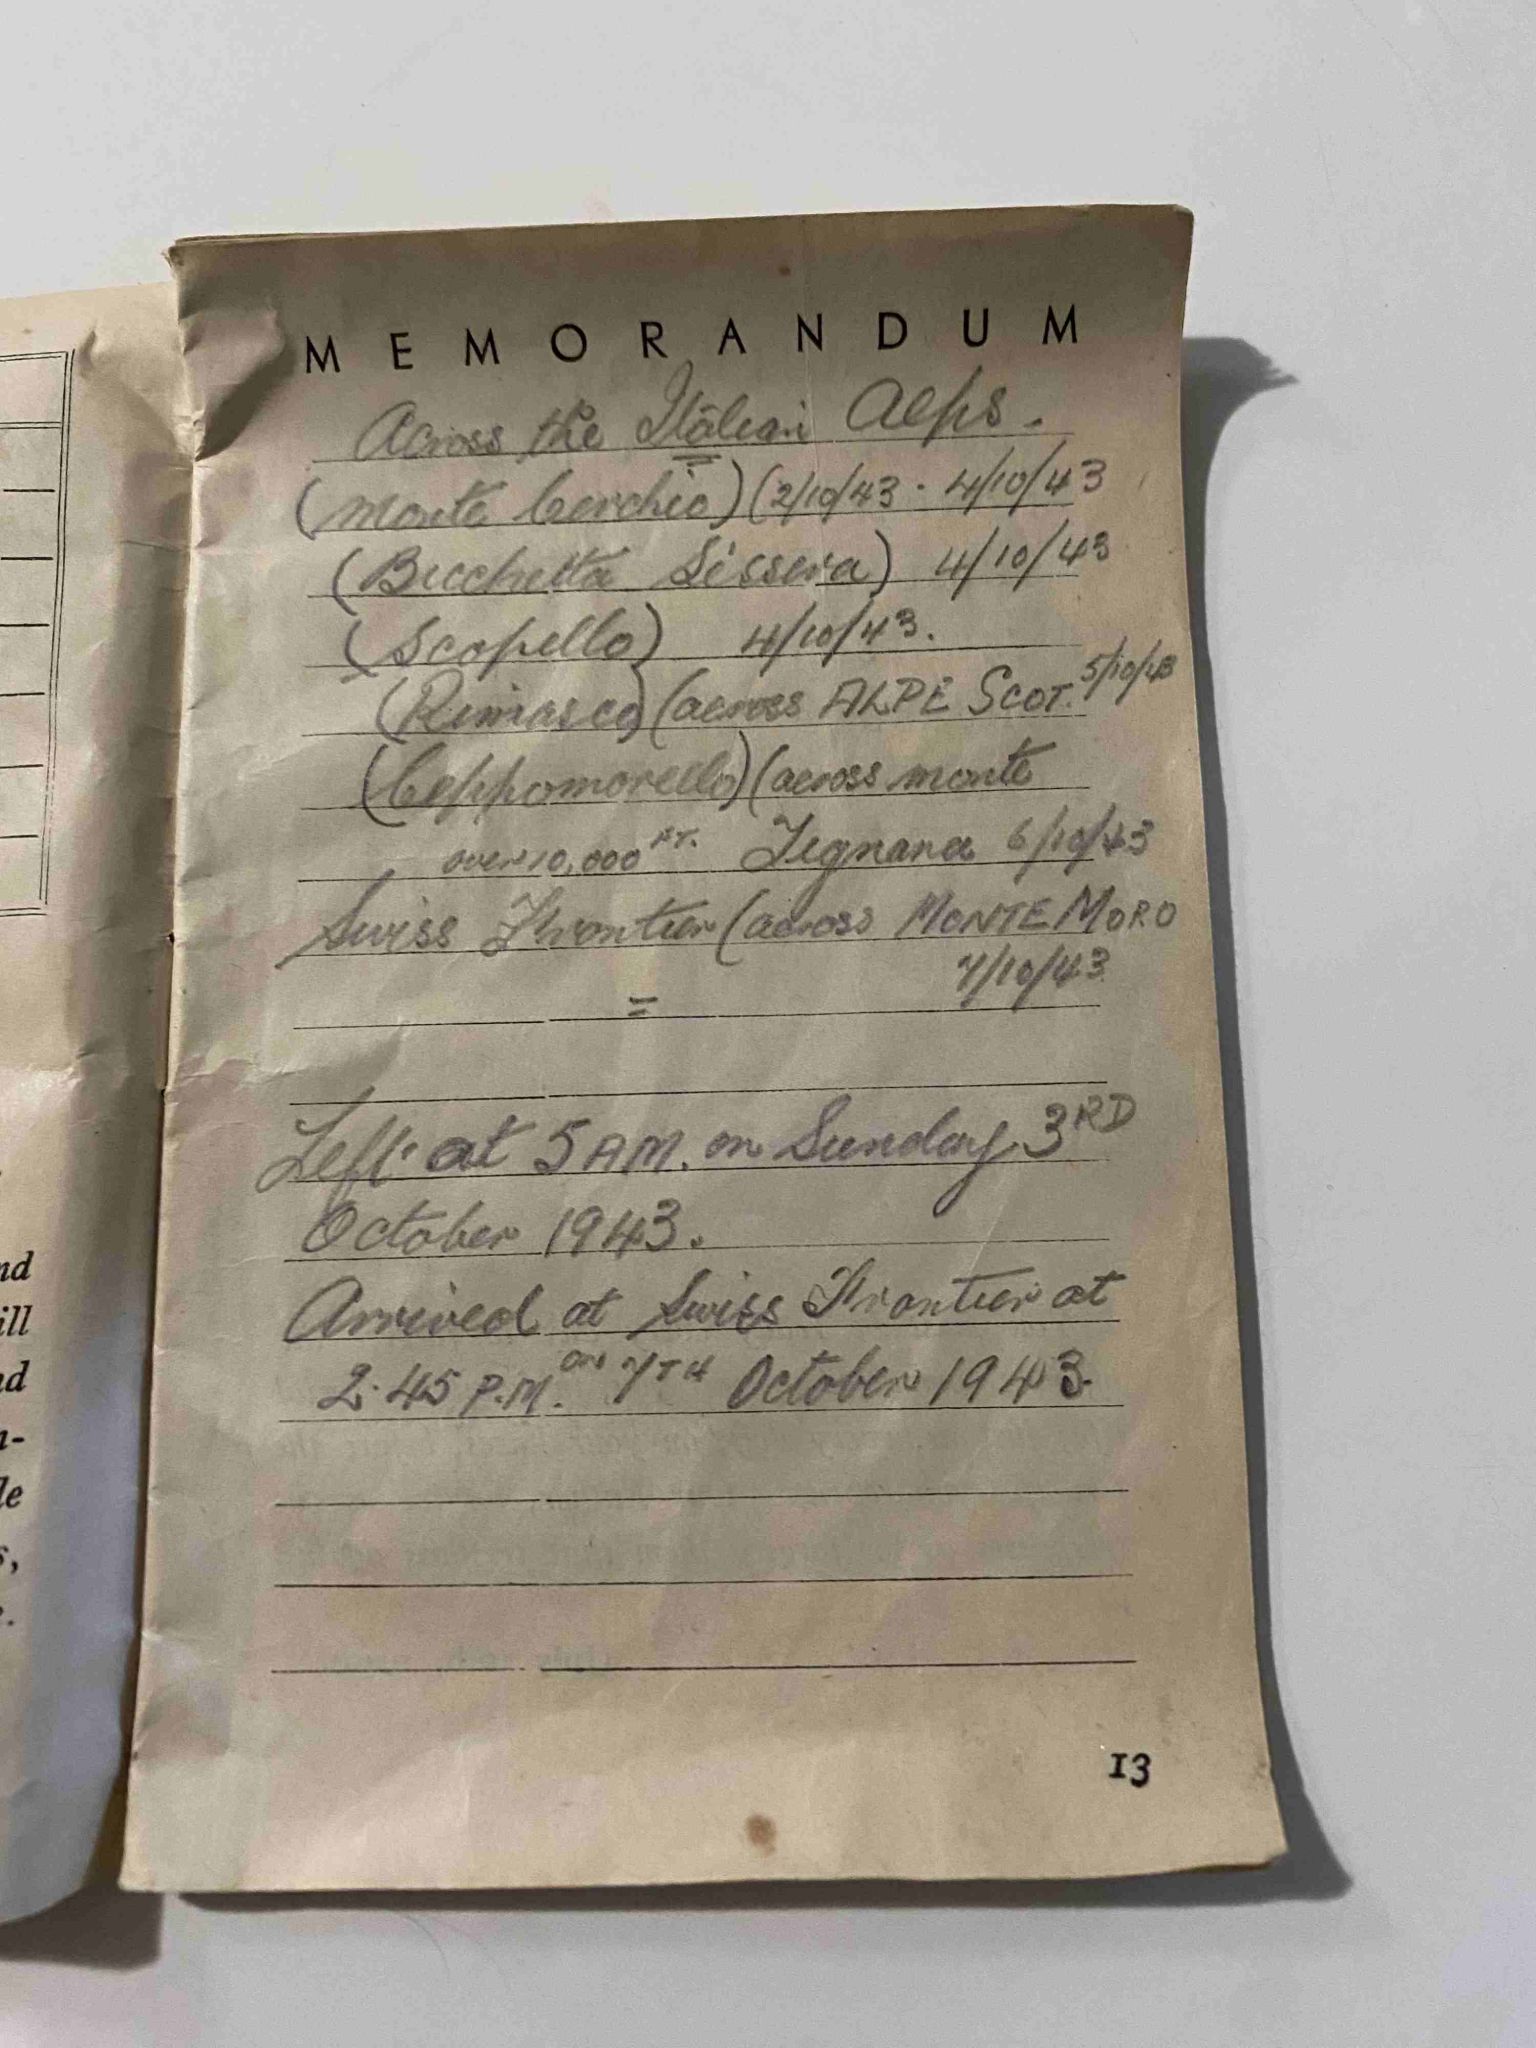 MEMORANDUM
Across the Italian Alps.
(Monte Cerchio) (2/10/43 - 4/10/43
(Bocchetta Sissera) 4/10/43
(Scopello) 4/10/43.
(Rimasco) (across ALPE SCOT. 5/10/43
(Ceppomorello) (across monte
over 10,000 FT. Tegnana 6/10/43
Swiss Frontier (across MONTE MORO
7/10/43
=
Left at 5 AM. on Sunday 3RD
October 1943.
Arrived at Swiss Frontier at
2.45 P.M. ON 7TH October 1943.
13
nd
ill
nd
n-
le
s,
e.